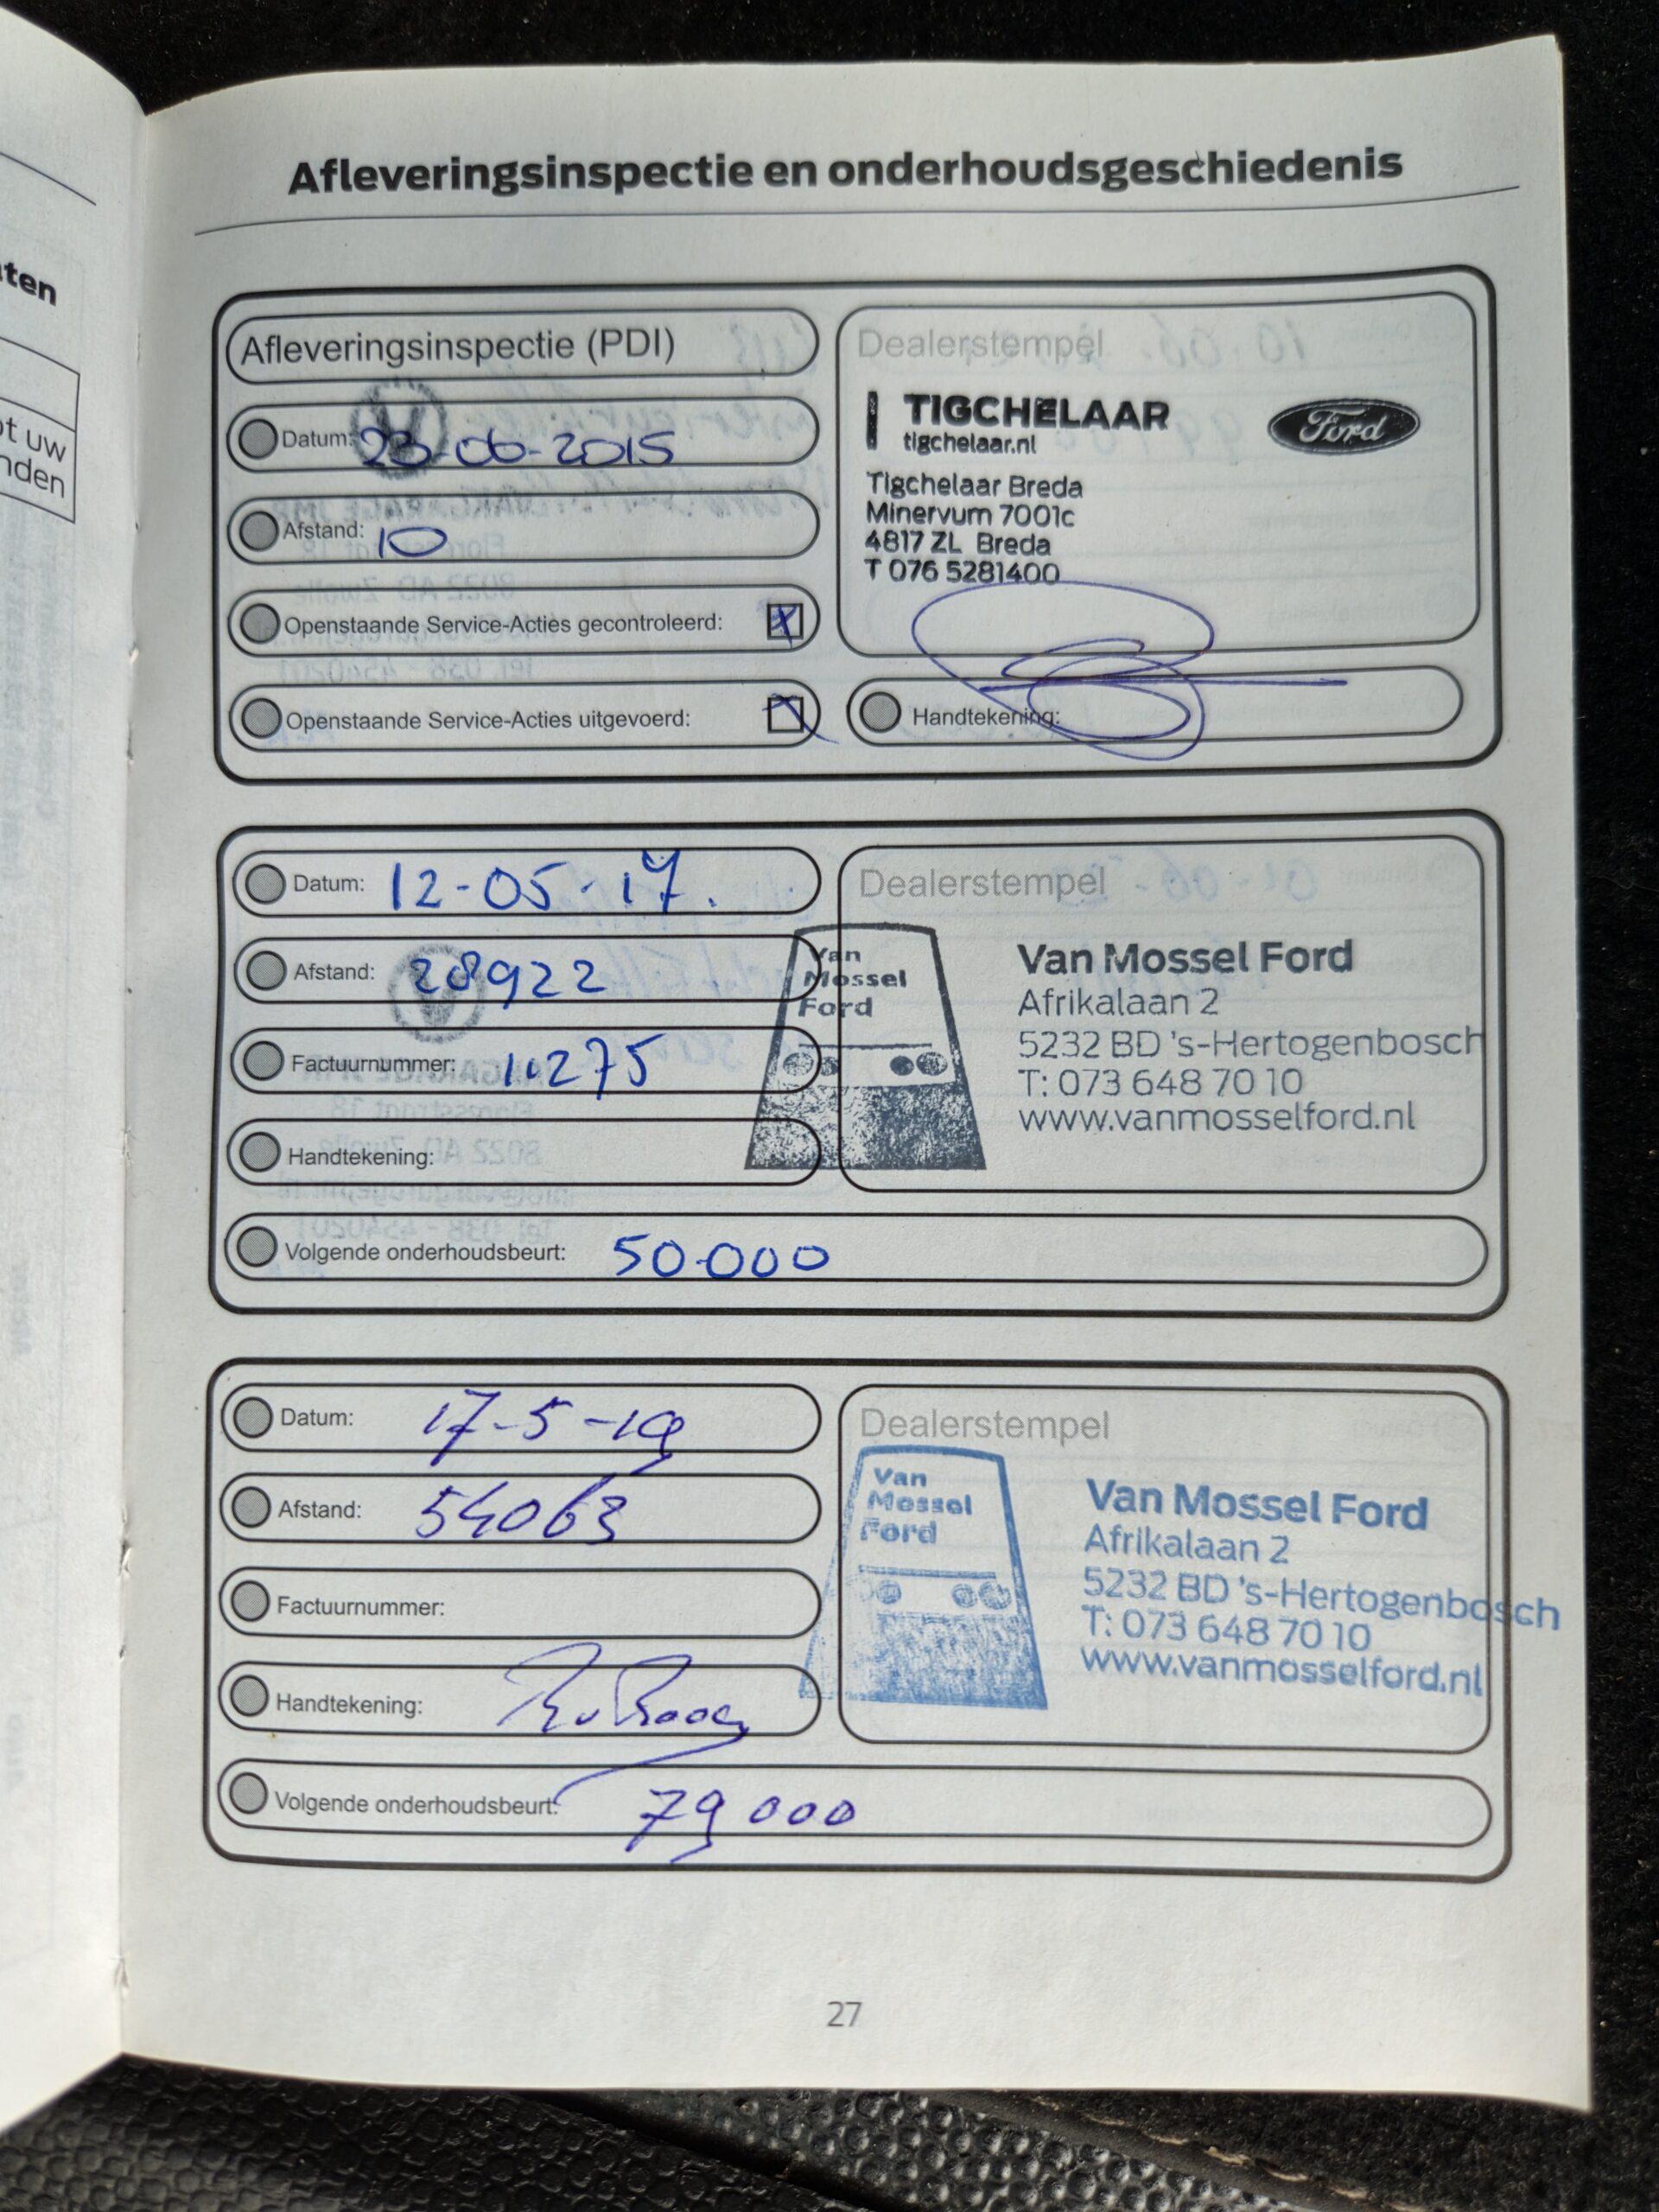 ten
ot uw
nden
Afleveringsinspectie en onderhoudsgeschiedenis
Afleveringsinspectie (PDI)
Datum: 23-06-2015
Afstand: 10
Openstaande Service-Acties gecontroleerd: X
Openstaande Service-Acties uitgevoerd:
Dealerstempel
TIGCHELAAR
tigchelaar.nl
Ford
Tigchelaar Breda
Minervum 7001c
4817 ZL Breda
T 076 5281400
Handtekening:
Datum: 12-05-17.
Afstand: 28922
Factuurnummer:
Handtekening:
Volgende onderhoudsbeurt: 50.000
Dealerstempel
Van
Mossel
Ford
Van Mossel Ford
Afrikalaan 2
5232 BD 's-Hertogenbosch
T: 073 648 70 10
www.vanmosselford.nl
Datum: 17-5-19
Afstand: 54063
Factuurnummer:
Handtekening:
Volgende onderhoudsbeurt: 79000
Dealerstempel
Van
Mossel
Ford
Van Mossel Ford
Afrikalaan 2
5232 BD 's-Hertogenbosch
T: 073 648 70 10
www.vanmosselford.nl
27